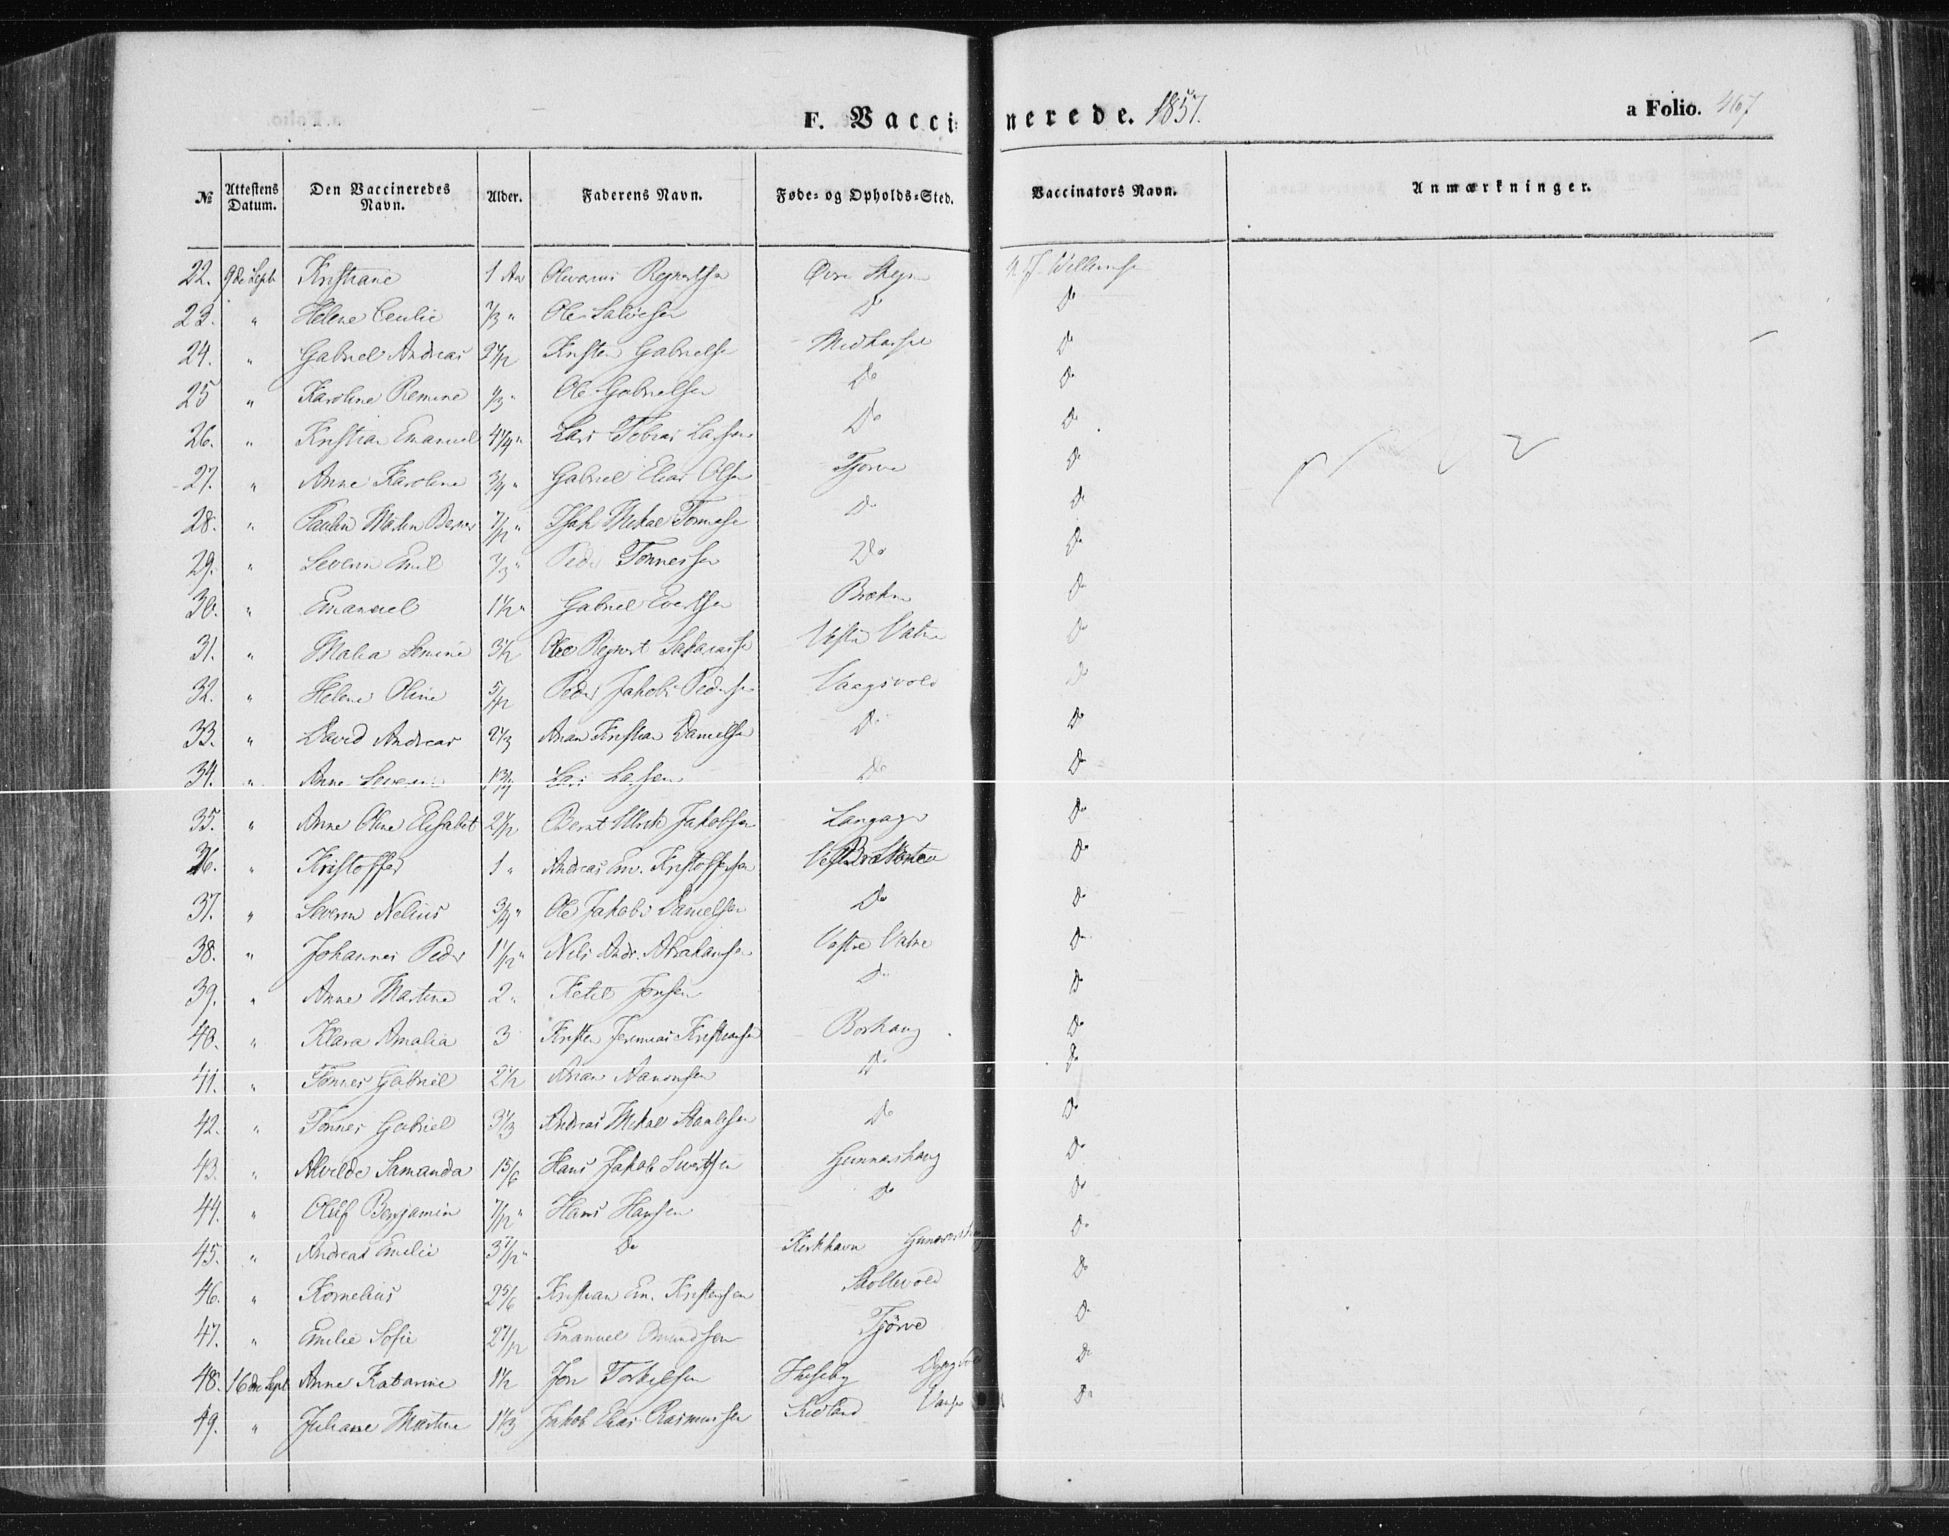 F. Vaccinerede. 1857. a Folio. 467
№ Attestens Datum. Den Vaccineredes Navn. Alder. Faderens Navn. Føde= og Opholds=Sted. Vaccinators Navn. Anmærkninger.
22. 9de Sept. Kristiane 1 Aar Olevarius Reynertsen Øvre
23. " Helene Cecilie " Ole Salvesen Do Do
24. " Gabriel Andreas 2 1/2 Kristen Gabrielsen Midhassel Do
25 " Karoline " Ole Gabrielsen Do Do
26. " Kristian Emanuel 4 1/4 " Lars Tobias Larsen Do Do
27. " Anne Karoline 3/4 " Gabriel Elias Olsen Tjorve Do
28. " 7/12 " Mikal Do Do
29. " Severin Emil " Peder Tønnessen Do Do
30. " Emanuel 1 1/2 " Gabriel Evertsen Do
31. " Malia 3 1/2 Ole Reinert Sakariasen Vestre Vatne Do
32. " Helene Oline 5/12 Peder Jakob Pedersen Vaagsvold Do
33. " David Andreas 2 1/3 Anan Kristian Danielsen Do Do
34. " Anne 1 3/4 Lars Larsen Do Do
35. " Anne Oline Elisabet 2 1/2 Bernt Ulrik Jakobsen Langager Do
36. " Kristoffer 1 " Andreas Em. Kristoffersen Do
37. " Severin Nelius 3/4 " Ole Jakob Danielsen Do Do
38. " Johannes Peder 1 1/12 " Nils Andr. Abrahamsen Vestre Vatne Do
39. " Anne Martine 2 " Ketil Jonsen Do Do
40. " Klara Amalia 3 Kristen Jeremias Kristiansen Borhaug Do
41. " Tønnes Gabriel 2 1/2 Anan Aanonsen Do Do
42. " Tønnes Gabriel 3 1/3 Andreas Mikal Do Do
43. " Alvilde Samanda 1 5/6 Hans Jakob Sivertsen Gunnarshaug Do
44. " Oluf Benjamin 7/12 " Hans Hansen Do Do
45. " Andreas Emelie 3 7/12 " Do Kirkhavn Gunnarshaug Do
46. " Kornelius 2 5/6 Kristian Em. Kristensen Do
47. " Emilie Sofie 2 7/12 Emanuel Omundsen Tjörve Do
48. 16de Sept Anne Katarine 1 1/2 Jon Torkelsen Huseby Do
49. " Juliane Martine 1 1/3 Jakob Elias Rasmussen Do